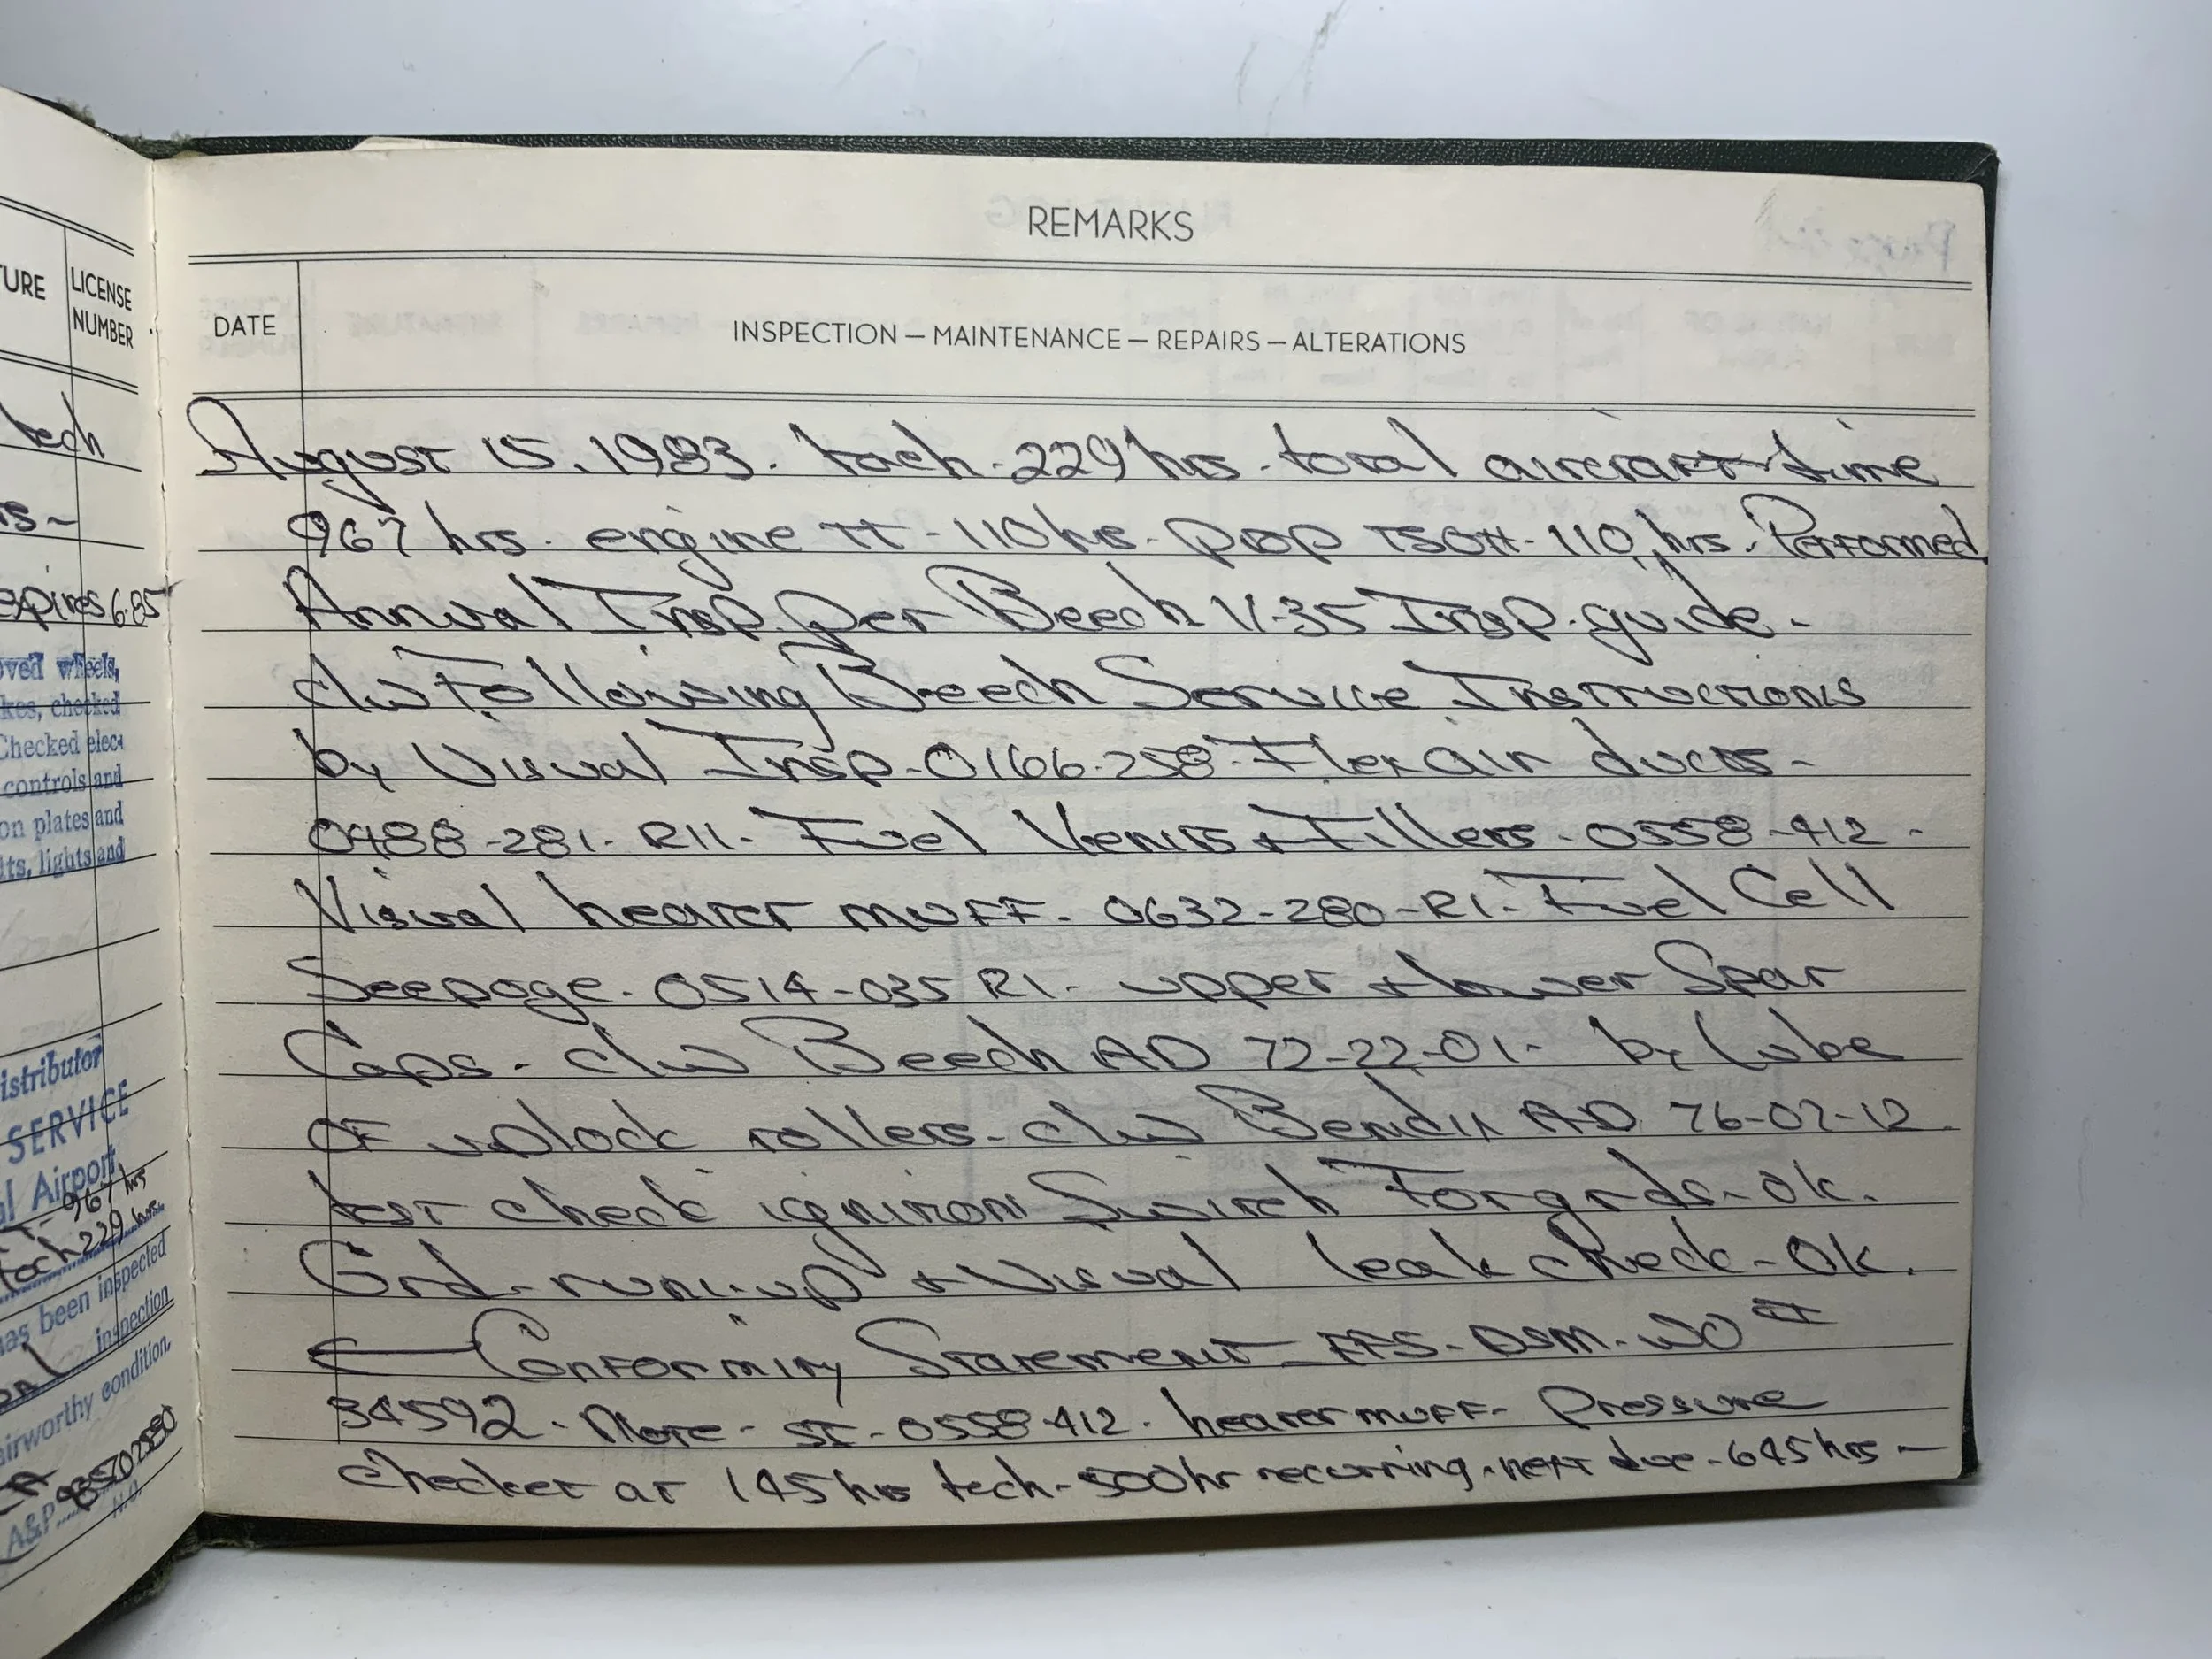 TURE
LICENSE
NUMBER
tech
rs-
expires 6.85
oved wheels,
kes, checked
Checked elec.
controls and
on plates and
lts, lights and
istributor
SERVICE
al Airport
967 hrs
tach 229 hrs.
has been inspected
inspection
airworthy condition.
A&P
REMARKS
DATE
INSPECTION — MAINTENANCE — REPAIRS — ALTERATIONS
August 15, 1983. tach - 229 hrs. total aircraft time
967 hrs. engine TT - 110 hrs. prop TSOH - 110 hrs. Performed
Annual Insp. per Beech V-35 Insp. guide.
c/w Following Beech Service Instructions
by Visual Insp - 0166-258 - Flex air ducts -
0488-281. R11. Fuel Vents + Fillers - 0558-412 -
Visual heater muff - 0632-280-R1 - Fuel Cell
Seepage - 0514-035 R1. - upper + lower Spar
Caps - c/w Beech AD 72-22-01 - by Lube
of uplock rollers - c/w Bendix AD 76-07-12
test check ignition Switch For grds - ok.
Grd. run-up + Visual leak check - OK.
← Conformity Statement - EFS - DSM - WO #
34592 - Note - SI - 0558-412. heater muff - Pressure
checked at 145 hrs tach - 500 hr recurring - next due - 645 hrs -